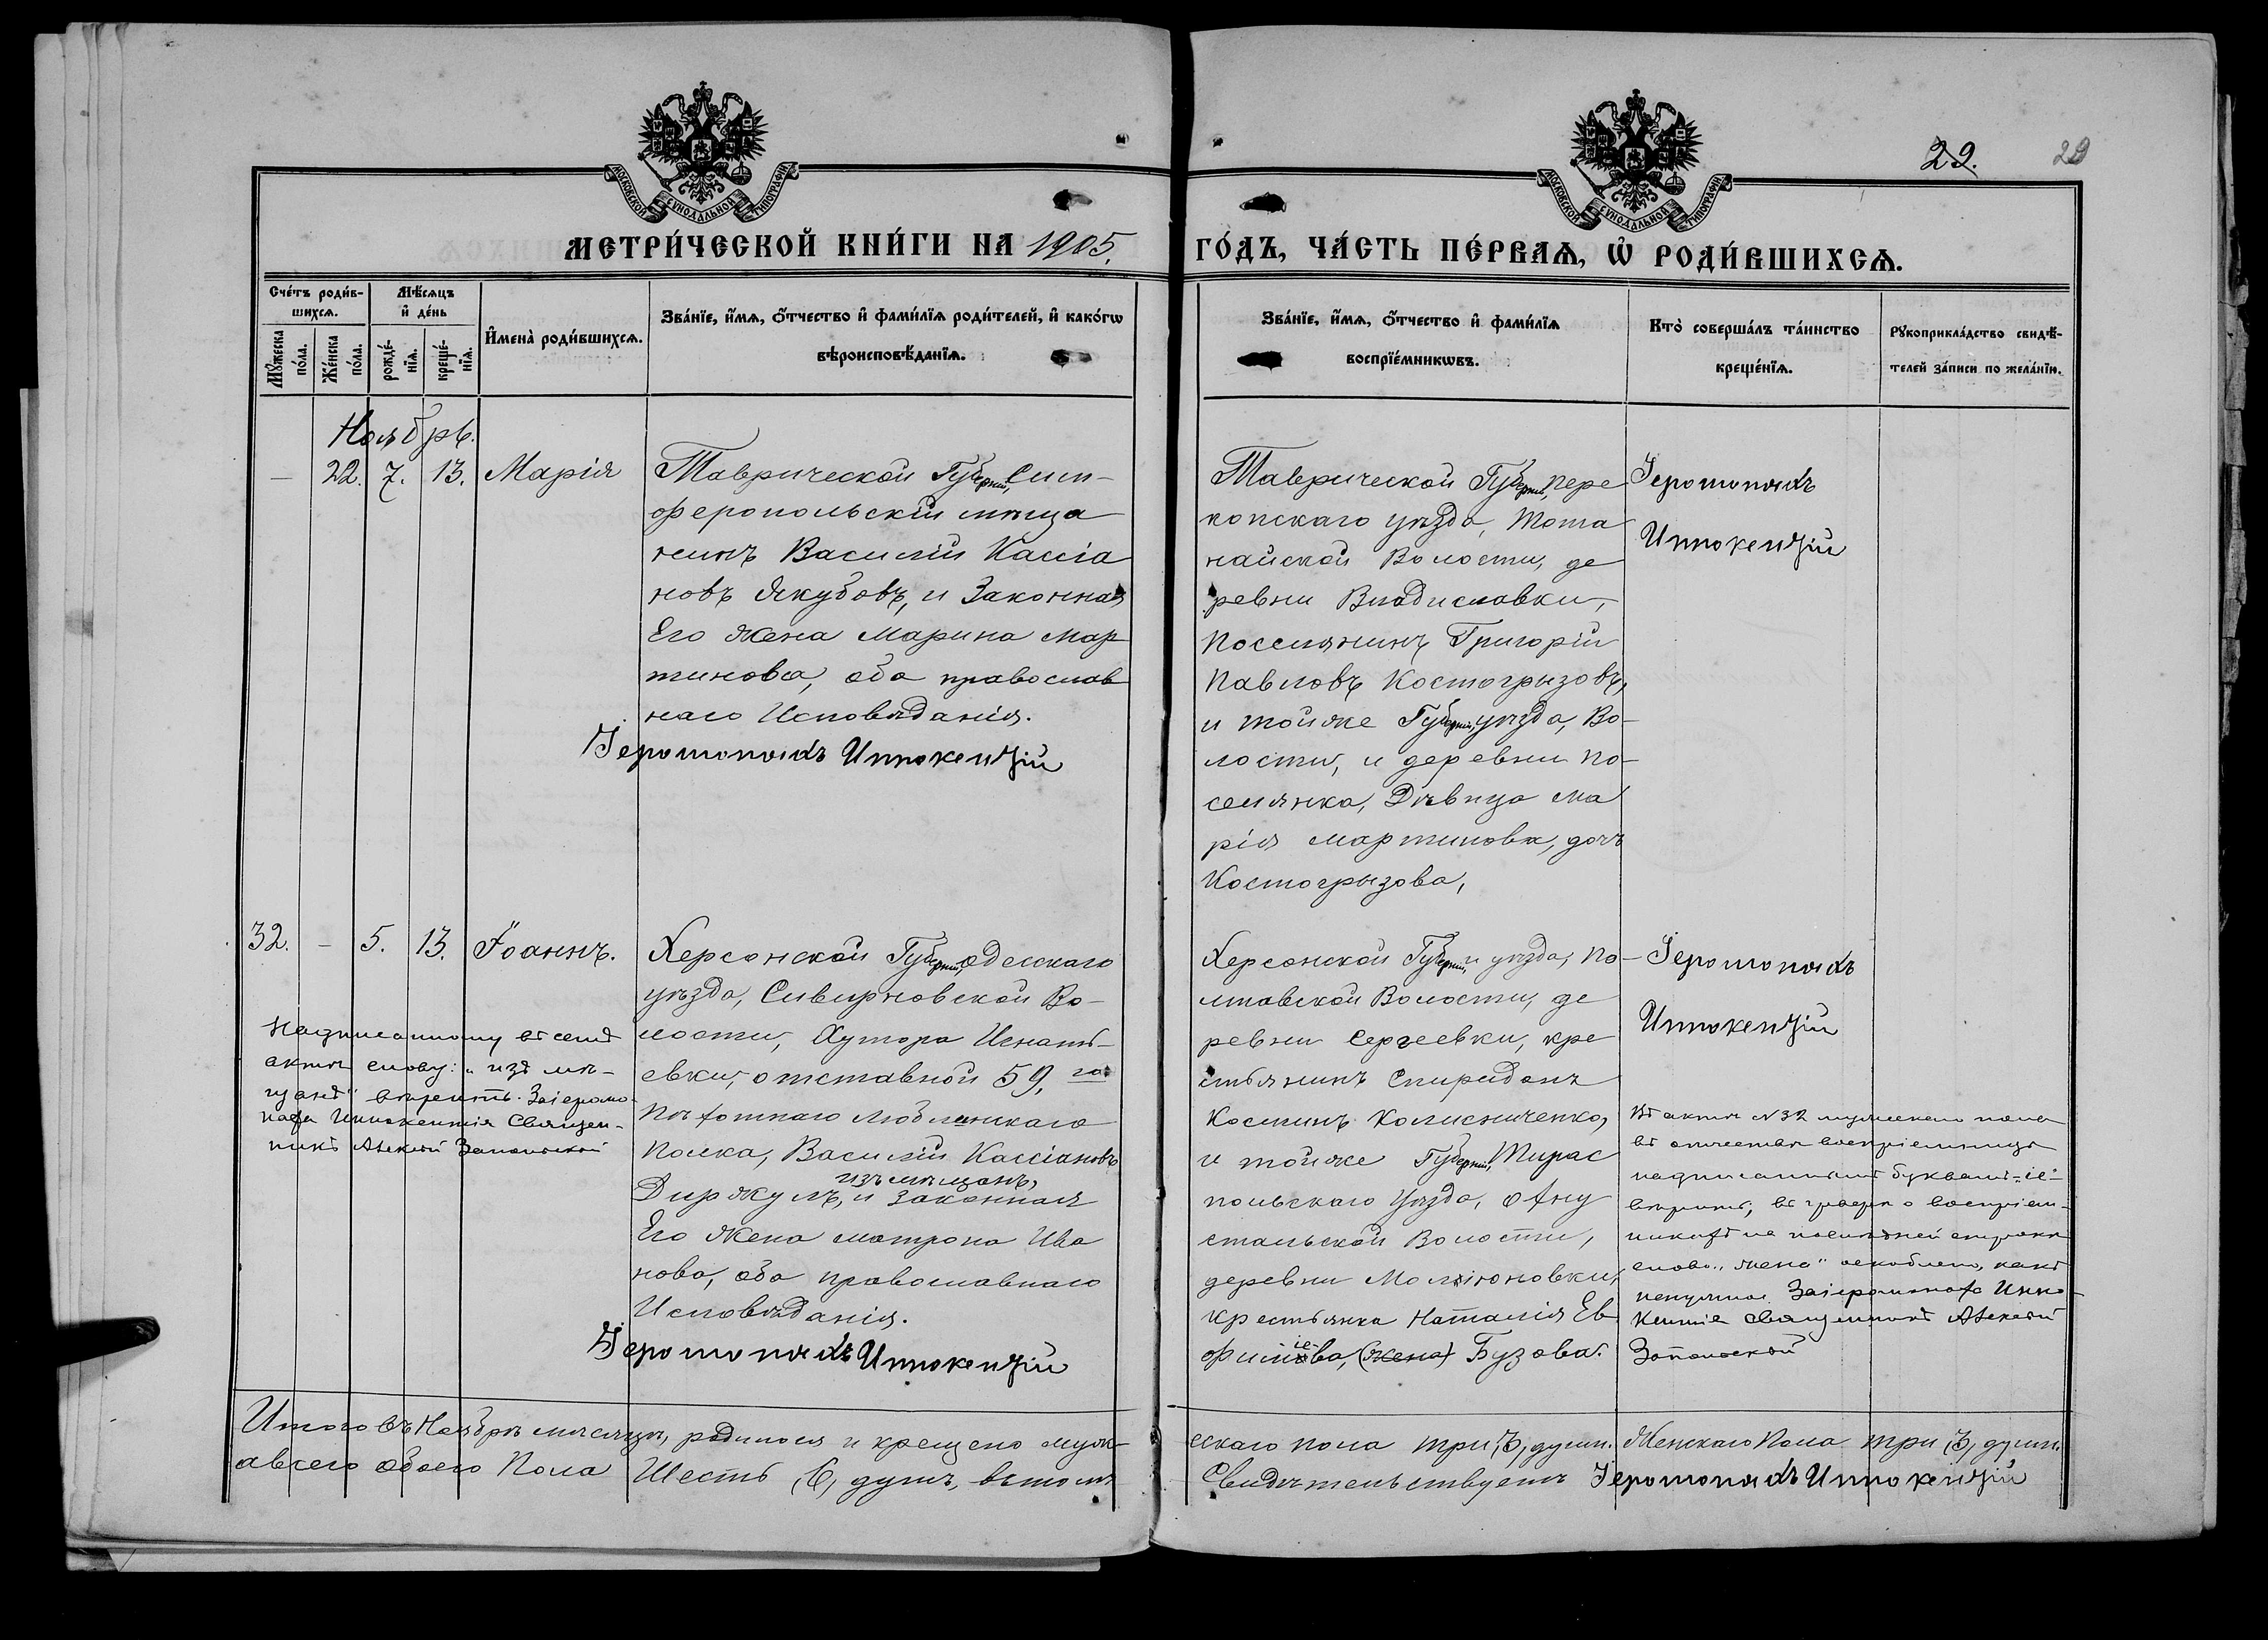 22.
29
МОСКОВСКОЙ СѴНОДАЛЬНОЙ ТИПОГРАФІИ
МОСКОВСКОЙ СѴНОДАЛЬНОЙ ТИПОГРАФІИ
МЕТРИ́ЧЕСКОЙ КНИ́ГИ НА 1905.
ГО́ДЪ, ЧА́СТЬ ПЕ́РВАѦ, Ѡ҆ РОДИ́ВШИХСѦ.
Сче́тъ роди́в-
шихсѧ.
Мꙋ́жеска
по́ла.
Же́нска
по́ла.
Мѣ́сѧцъ
и҆ де́нь
рожде́-
нїѧ.
креще́-
нїѧ.
И҆мена̀ роди́вшихсѧ.
Зва́нїе, и҆́мѧ, ѻ҆́тчество и҆ фами́лїѧ роди́телей, и҆ како́гѡ
вѣроисповѣ́данїѧ.
Зва́нїе, и҆́мѧ, ѻ҆́тчество и҆ фами́лїѧ
воспрїе́мникѡвъ.
Кто̀ соверша́лъ та́инство
креще́нїѧ.
Рꙋкоприкла́дство свидѣ́-
телей за́писи по жела́нїю.
Ноябрь.
— 22. 7. 13. Марія
Таврической Губерніи, Сим-
феропольскій мѣща
нинъ Василій Кассіа
новъ Якубовъ, и Законная
Его Жена Марина Мар
тинова, оба православ
наго Исповѣданія.
Іеромонахъ Иннокентій
Таврической Губерніи, Пере
копскаго уѣзда, Тота
найской Волости, де
ревни Владиславки,
Поселянинъ Григорій
Павловъ Костогрызовъ,
и тойже Губерніи, уѣзда, Во-
лости, и деревни по-
селянка, Дѣвица Ма
рія Мартинова, дочь
Костогрызова,
Іеромонахъ
Иннокентій
32. — 5. 13. Іоаннъ.
Херсонской Губерніи, Одесскаго
уѣзда, Сивириновской Во-
лости, Хутора Игнать-
евки, отставной 59, го
Пѣхотнаго Люблинскаго
Полка, Василій Кассіановъ
изъ мѣщанъ,
Диржулъ, и Законная
Его Жена Матрона Ива
нова, оба православнаго
Исповѣданія.
Іеромонахъ Иннокентій
Надписанному въ семъ
актѣ слову: „изъ мѣ-
щанъ" вѣрить. За іеромо-
наха Иннокентія Священ-
никъ Алексій
Херсонской Губерніи, и уѣзда, По-
лтавской Волости, де
ревни Сергеевки, кре
стьянинъ Спиридонъ
Костинъ Колисниченко,
и тойже Губерніи, Тирас
польскаго Уѣзда,
стальской Волости,
деревни
крестьянка Наталія Ев
фиміева, (жена) Бузова.
Іеромонахъ
Иннокентій
Въ актѣ № 32 мужескаго пола
въ отчествѣ воспріемницы
надписаннымъ буквамъ „іе"
вѣрить, въ графѣ о воспріем-
никахъ на послѣдней строкѣ
слово „жена" оскоблено, какъ
ненужное За іеромонаха Инно
кентія священникъ Алексій
Итого въ Ноябрѣ мѣсяцѣ, родилося и крещено муж-
ескаго пола три, 3, души. Женскаго Пола три, 3, души.
а всего обоего Пола Шесть, 6, душъ, въ томъ
Свидѣтельствуетъ Іеромонахъ Иннокентій